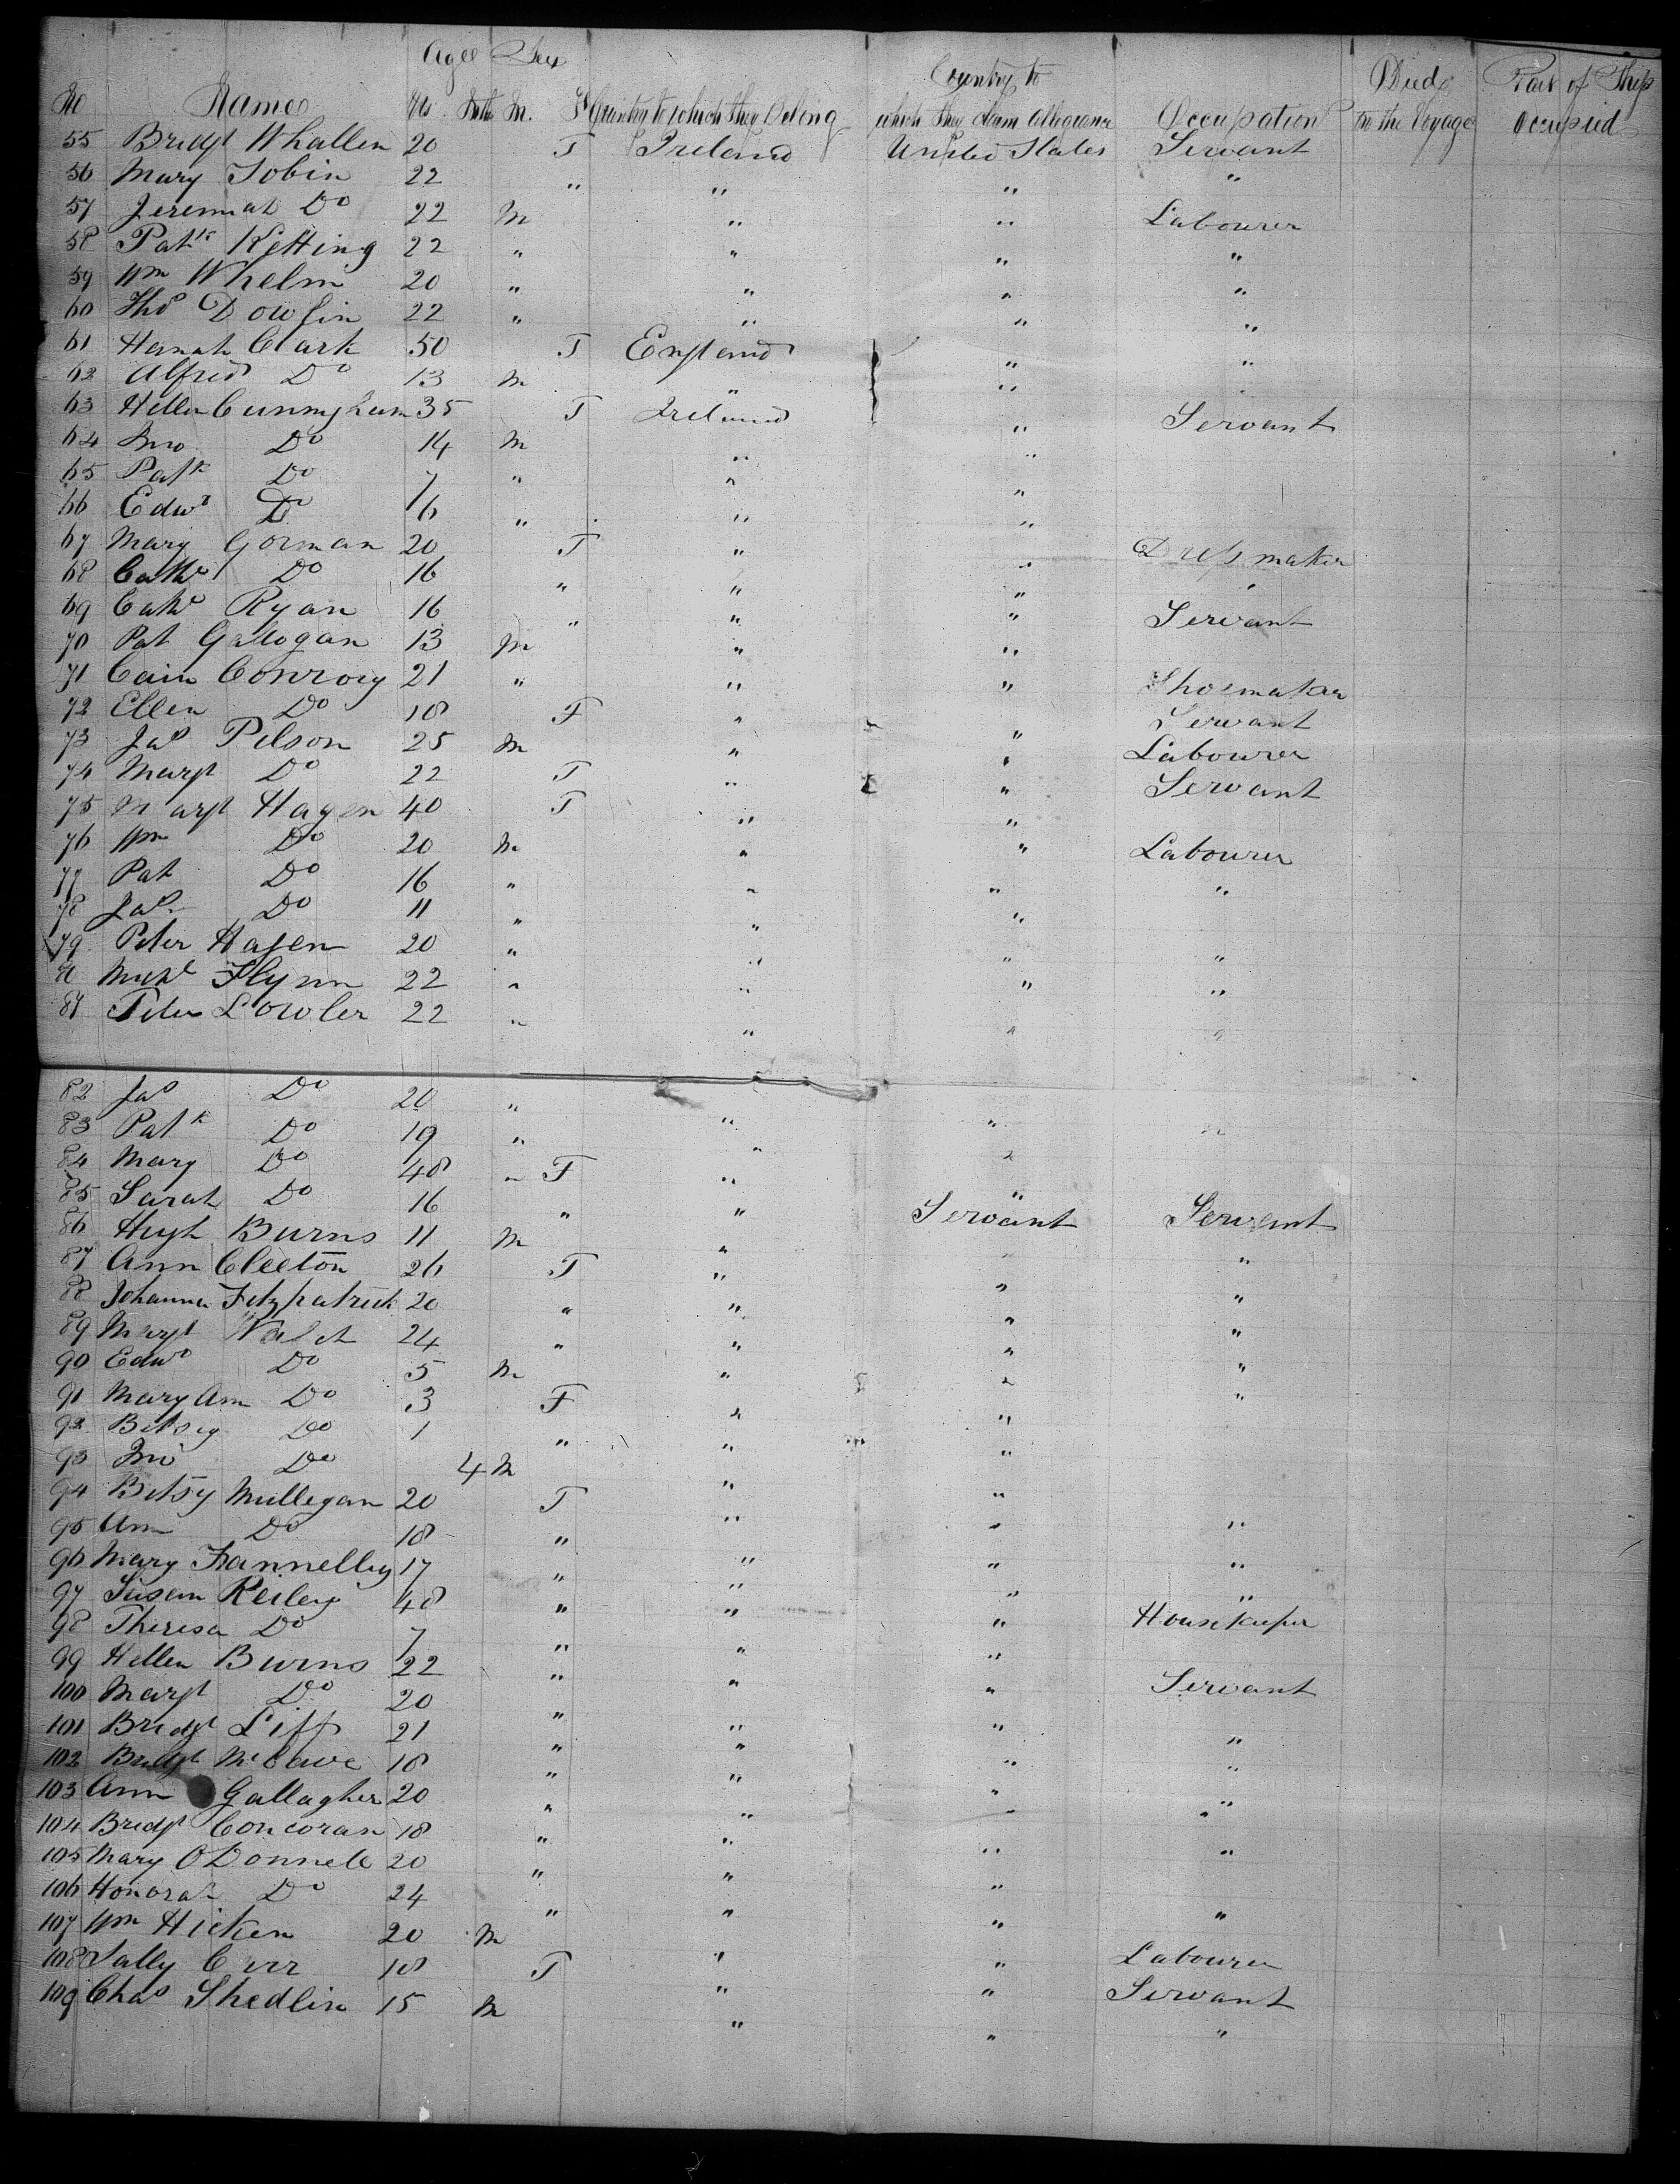 Age Sex Country to Died Part of Ship
No Names Yrs Mths M. F Country to which they Belong which they claim Allegiance Occupation on the Voyage Occupied
55 Bridgt Whallen 20 F Ireland United States Servant
56 Mary Tobin 22 " " " "
57 Jeremiah Do 22 M " " Labourer
58 Patk Ketting 22 " " " "
59 Wm Whelm 20 " " " "
60 Thos Dowlin 22 " " " "
61 Hannah Clark 50 F England " "
62 Alfred Do 13 M " "
63 Hellen Cunningham 35 F Ireland " Servant
64 Jno Do 14 M " "
65 Patk Do 7 " " "
66 Edwd Do 6 " " "
67 Mary Gorman 20 F " " Dress maker
68 Cathe Do 16 " " " "
69 Cathe Ryan 16 " " " Servant
70 Pat Gallogan 13 M " "
71 Cain Conroy 21 " " " Shoemaker
72 Ellen Do 18 F " " Servant
73 Jas Pilson 25 M " " Labourer
74 Margt Do 22 F " " Servant
75 Margt Hagen 40 F " "
76 Wm Do 20 M " " Labourer
77 Pat Do 16 " " " "
78 Jas Do 11 " " "
79 Peter Hagen 20 " " " "
80 Michl Flynn 22 " " " "
81 Peter Lowler 22 " " " "
82 Jas Do 20 " " " "
83 Patk Do 19 " " "
84 Mary Do 48 " F " "
85 Sarah Do 16 " " Servant Servant
86 Hugh Burns 11 M " " "
87 Ann Cleeton 26 F " " "
88 Johanna Fitzpatrick 20 " " " "
89 Margt Walsh 24 " " " "
90 Edwd Do 5 M " " "
91 Mary Ann Do 3 F " "
92 Betsey Do 1 " " "
93 Jno Do 4 M " "
94 Betsy Mullegan 20 F " " "
95 Ann Do 18 " " " "
96 Mary Frannelley 17 " " " "
97 Susan Reiley 48 " " " Housekeeper
98 Theresa Do 7 " " "
99 Hellen Burns 22 " " " Servant
100 Margt Do 20 " " " "
101 Bridgt Liff 21 " " " "
102 Bridgt McCawe 18 " " " "
103 Ann Gallagher 20 " " " "
104 Bridgt Concoran 18 " " " "
105 Mary ODonnell 20 " " "
106 Honorah Do 24 " " " "
107 Wm Hicken 20 M " " Labourer
108 Sally Curr 18 F " " Servant
109 Chas Shedlin 15 M " " "